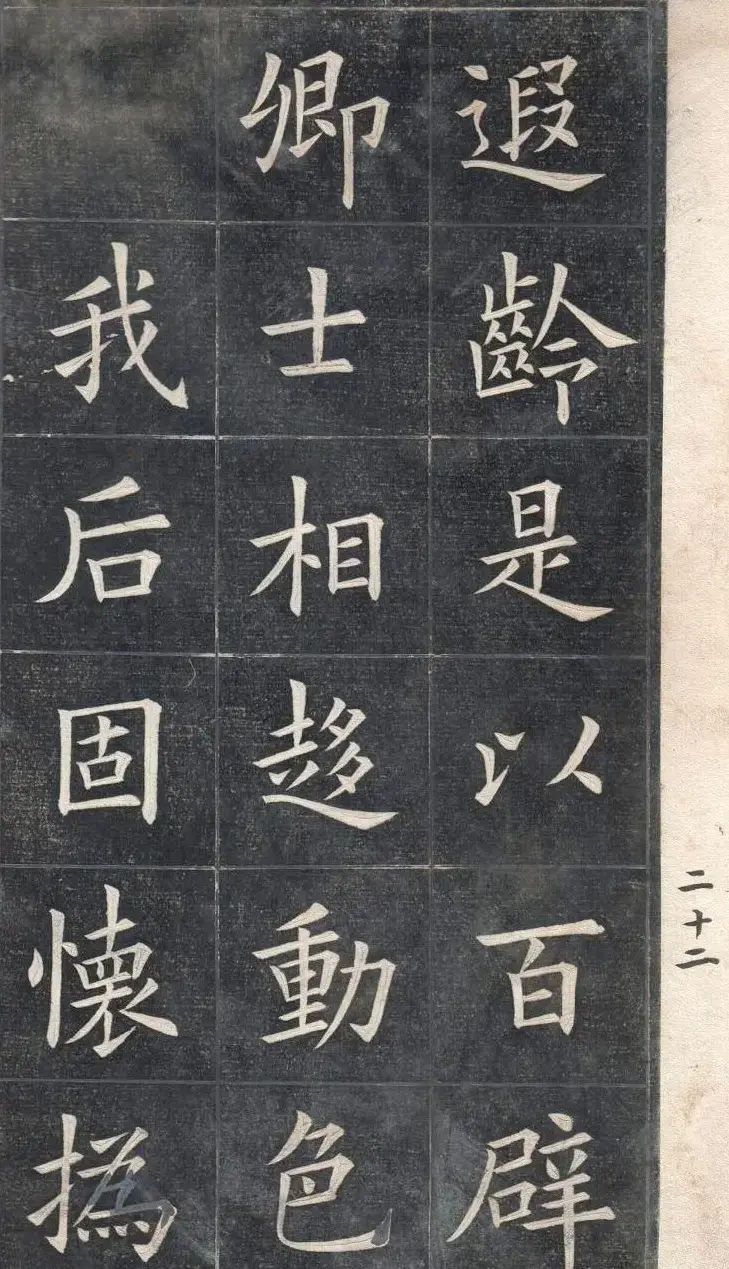 遐齡是以百辟
卿士相趍動色
我后固懷撝
二十二